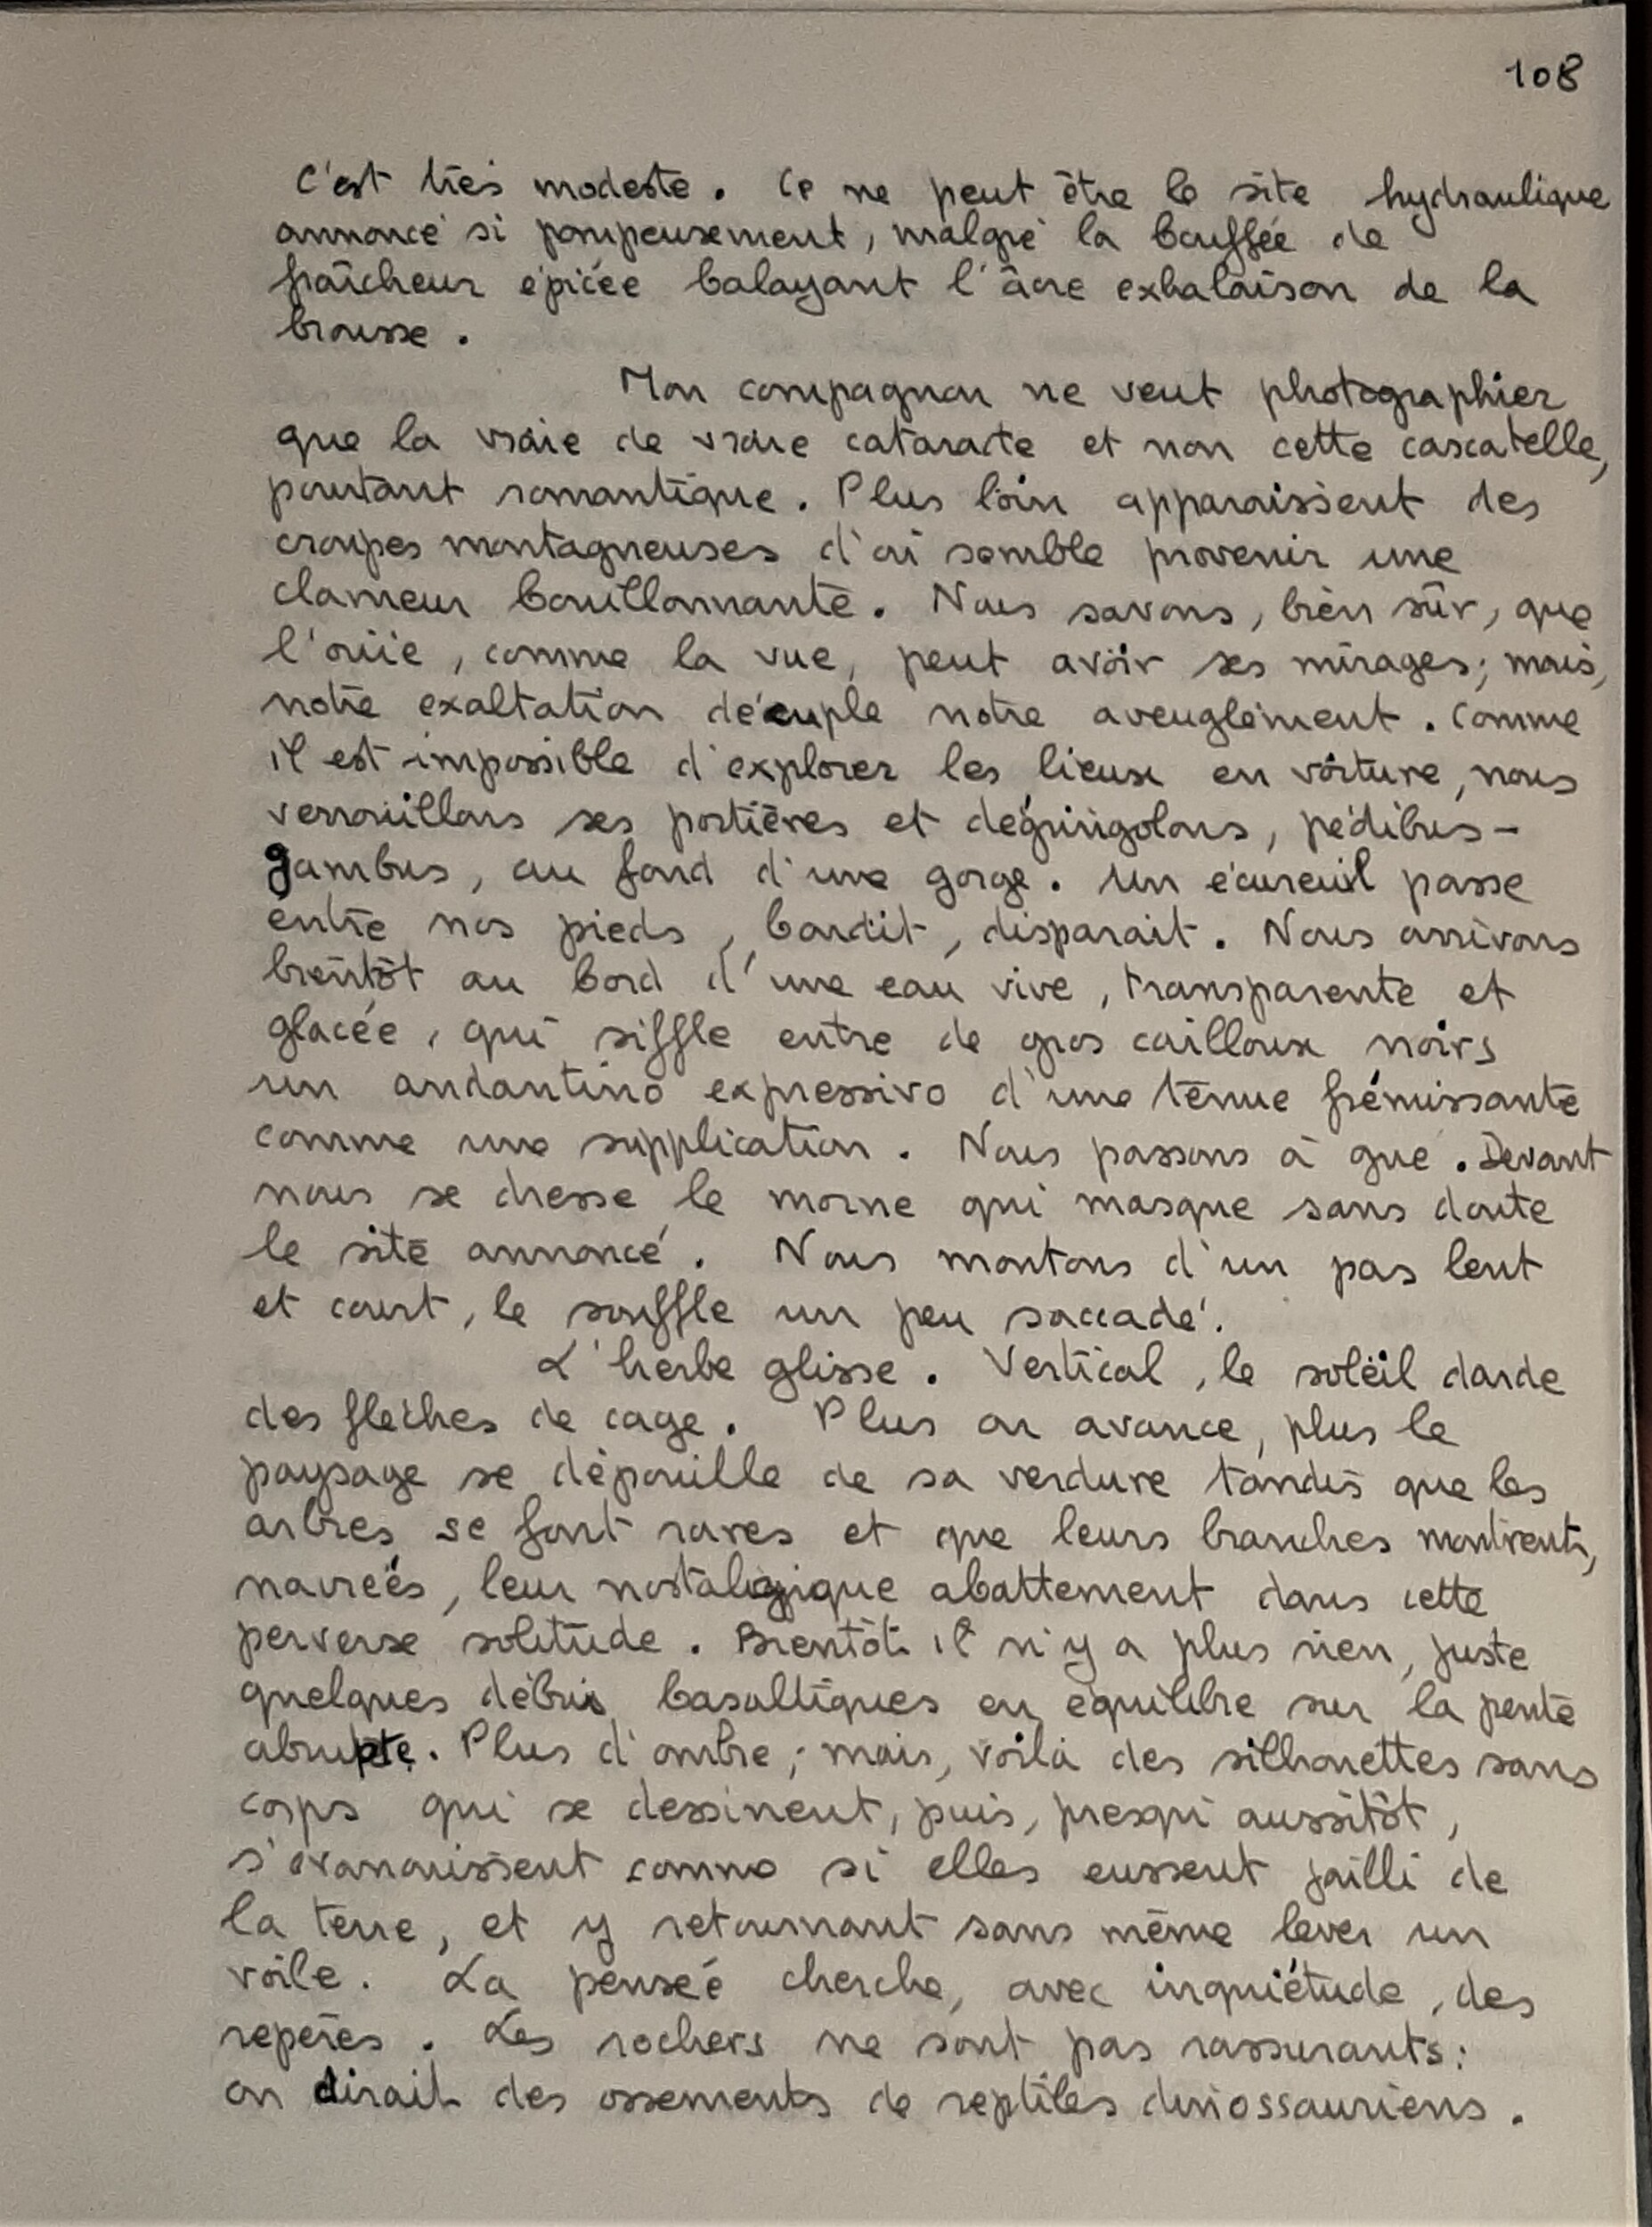 108
C'est très modeste. Ce ne peut être le site hydraulique
annoncé si pompeusement, malgré la bouffée de
fraîcheur épicée balayant l'âcre exhalaison de la
brousse.
Mon compagnon ne veut photographier
que la vraie de vraie cataracte et non cette cascatelle,
pourtant romantique. Plus loin apparaissent des
croupes montagneuses d'où semble provenir une
clameur bouillonnante. Nous savons, bien sûr, que
l'ouïe, comme la vue, peut avoir ses mirages; mais,
notre exaltation décuple notre aveuglement. Comme
il est impossible d'explorer les lieux en voiture, nous
verrouillons ses portières et dégringolons, pédibus-
gambus, au fond d'une gorge. Un écureuil passe
entre nos pieds, bondit, disparait. Nous arrivons
bientôt au bord d'une eau vive, transparente et
glacée, qui siffle entre de gros cailloux noirs
un andantino expressivo d'une tenue frémissante
comme une supplication. Nous passons à gué. Devant
nous se dresse le morne qui masque sans doute
le site annoncé. Nous montons d'un pas lent
et court, le souffle un peu saccadé.
L'herbe glisse. Vertical, le soleil darde
des flèches de cage. Plus on avance, plus le
paysage se dépouille de sa verdure tandis que les
arbres se font rares et que leurs branches montrent,
navrées, leur nostalgique abattement dans cette
perverse solitude. Bientôt il n'y a plus rien, juste
quelques débris basaltiques en équilibre sur la pente
abrupte. Plus d'ombre; mais, voilà des silhouettes sans
corps qui se dessinent, puis, presqu'aussitôt,
s'évanouissent comme si elles eussent jailli de
la terre, et y retournant sans même lever un
voile. La pensée cherche, avec inquiétude, des
repères. Les rochers ne sont pas rassurants:
on dirait des ossements de reptiles dinossauriens.